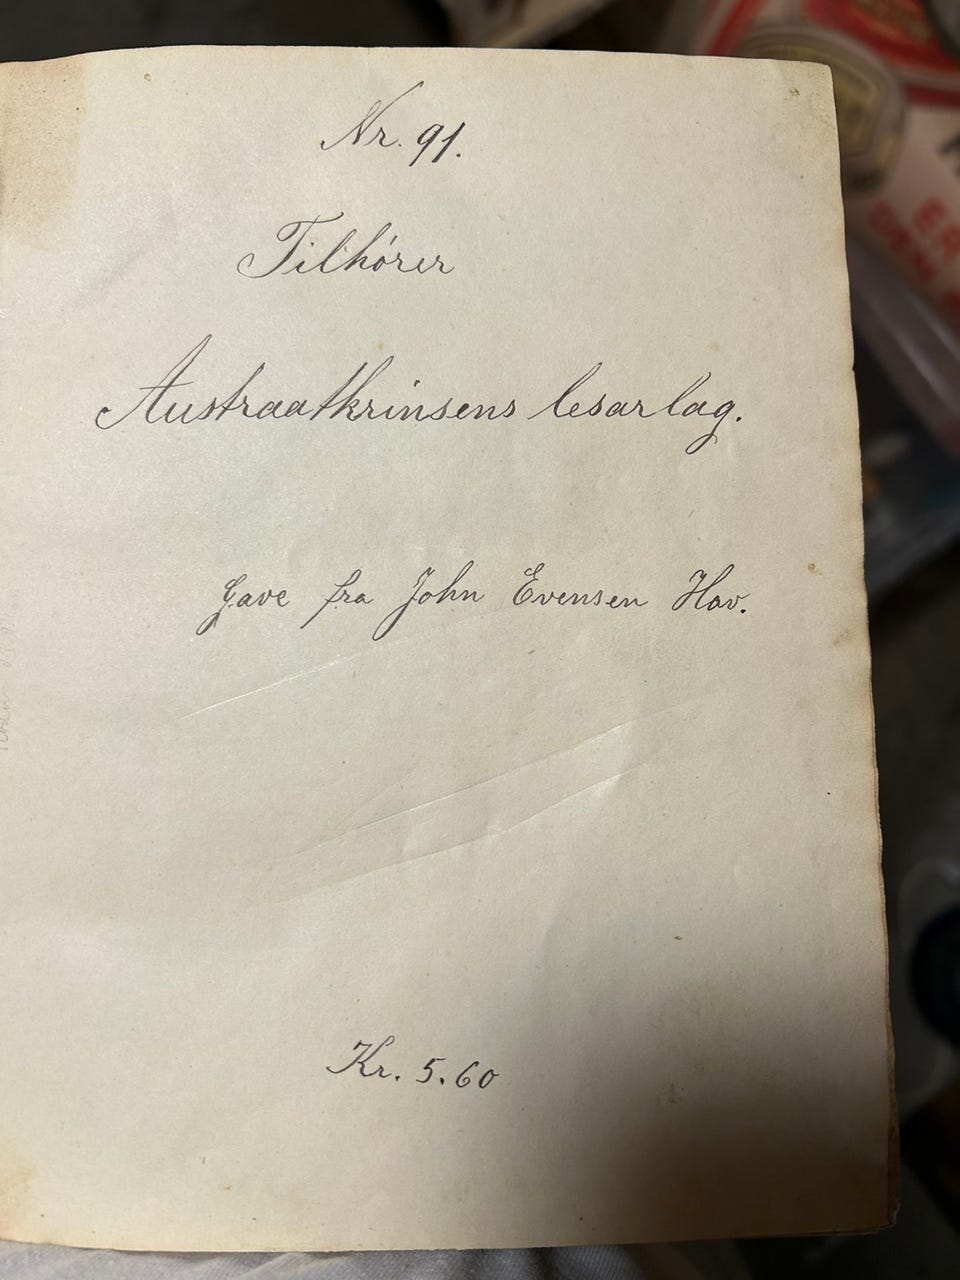 Nr. 91.
Tilhórer
Austraatkrinsens lesarlag.
Gave fra John Evensen Hov.
Kr. 5.60